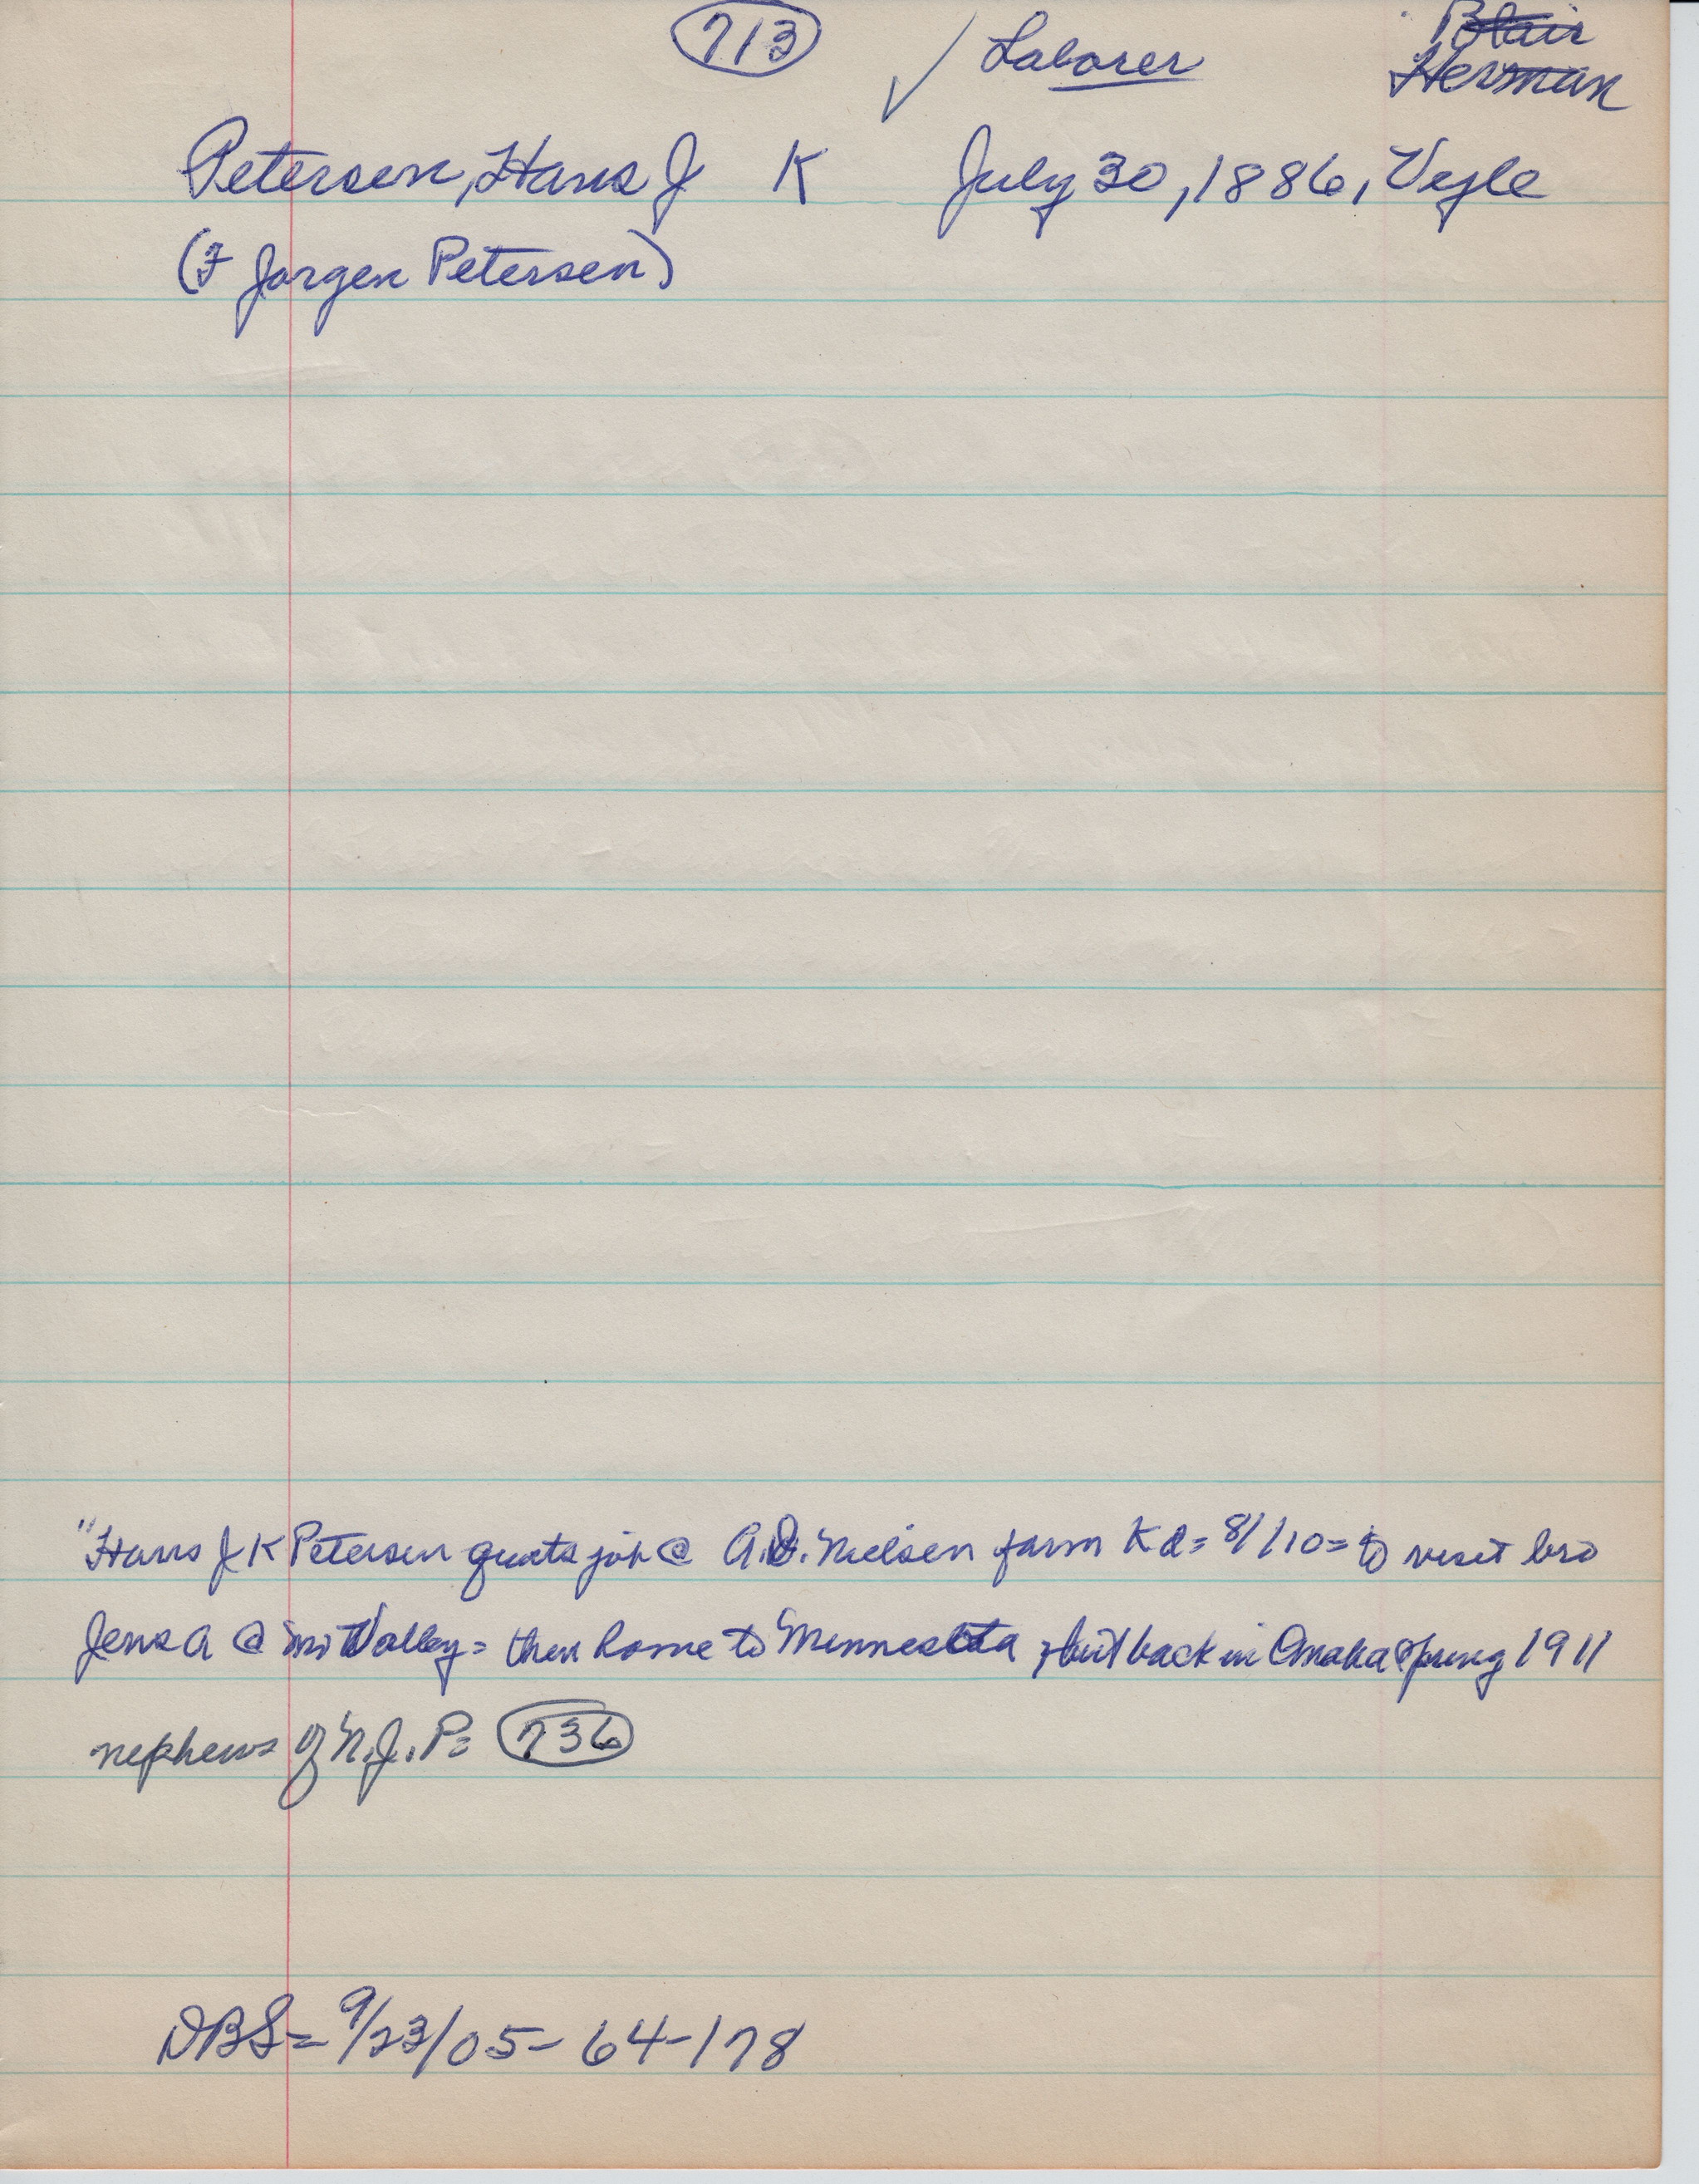 713 ✓ Laborer Blair
Herman
Petersen, Hans J K July 30, 1886, Vejle
(F Jorgen Petersen)
"Hans J K Petersen quits job @ A.D. Nielsen farm Kd = 8/1/10 = to visit bro
Jens A @ Mo Valley = then home to Minnesota, but back in Omaha Spring 1911
nephews of N.J.P= 736
DBS= 9/23/05- 64-178